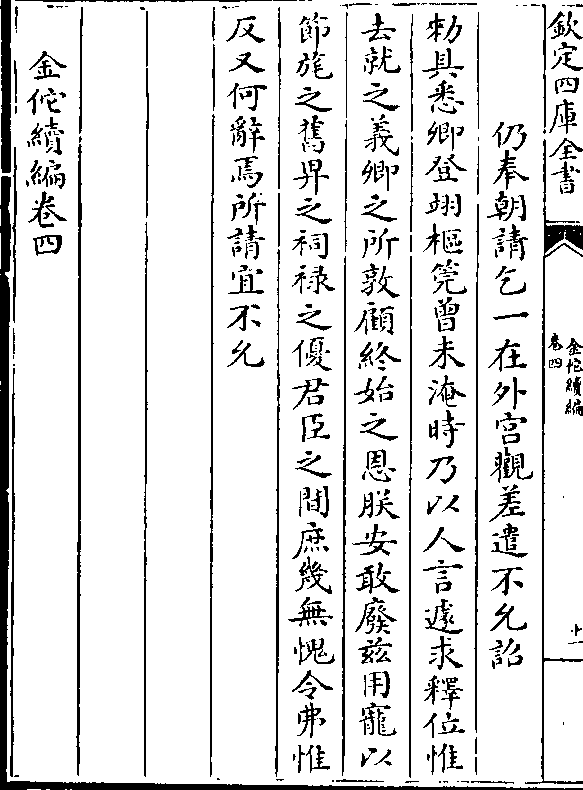 欽定四庫全書
金佗續編
卷四
十一
仍奉朝請乞一在外宮觀差遣不允詔
勑具悉卿登翊樞筦曾未淹時乃以人言遽求釋位惟
去就之義卿之所敦顧終始之恩朕安敢廢兹用寵以
節旄之舊畀之祠禄之優君臣之間庶幾無愧令弗惟
反又何辭焉所請宜不允
金佗續編卷四